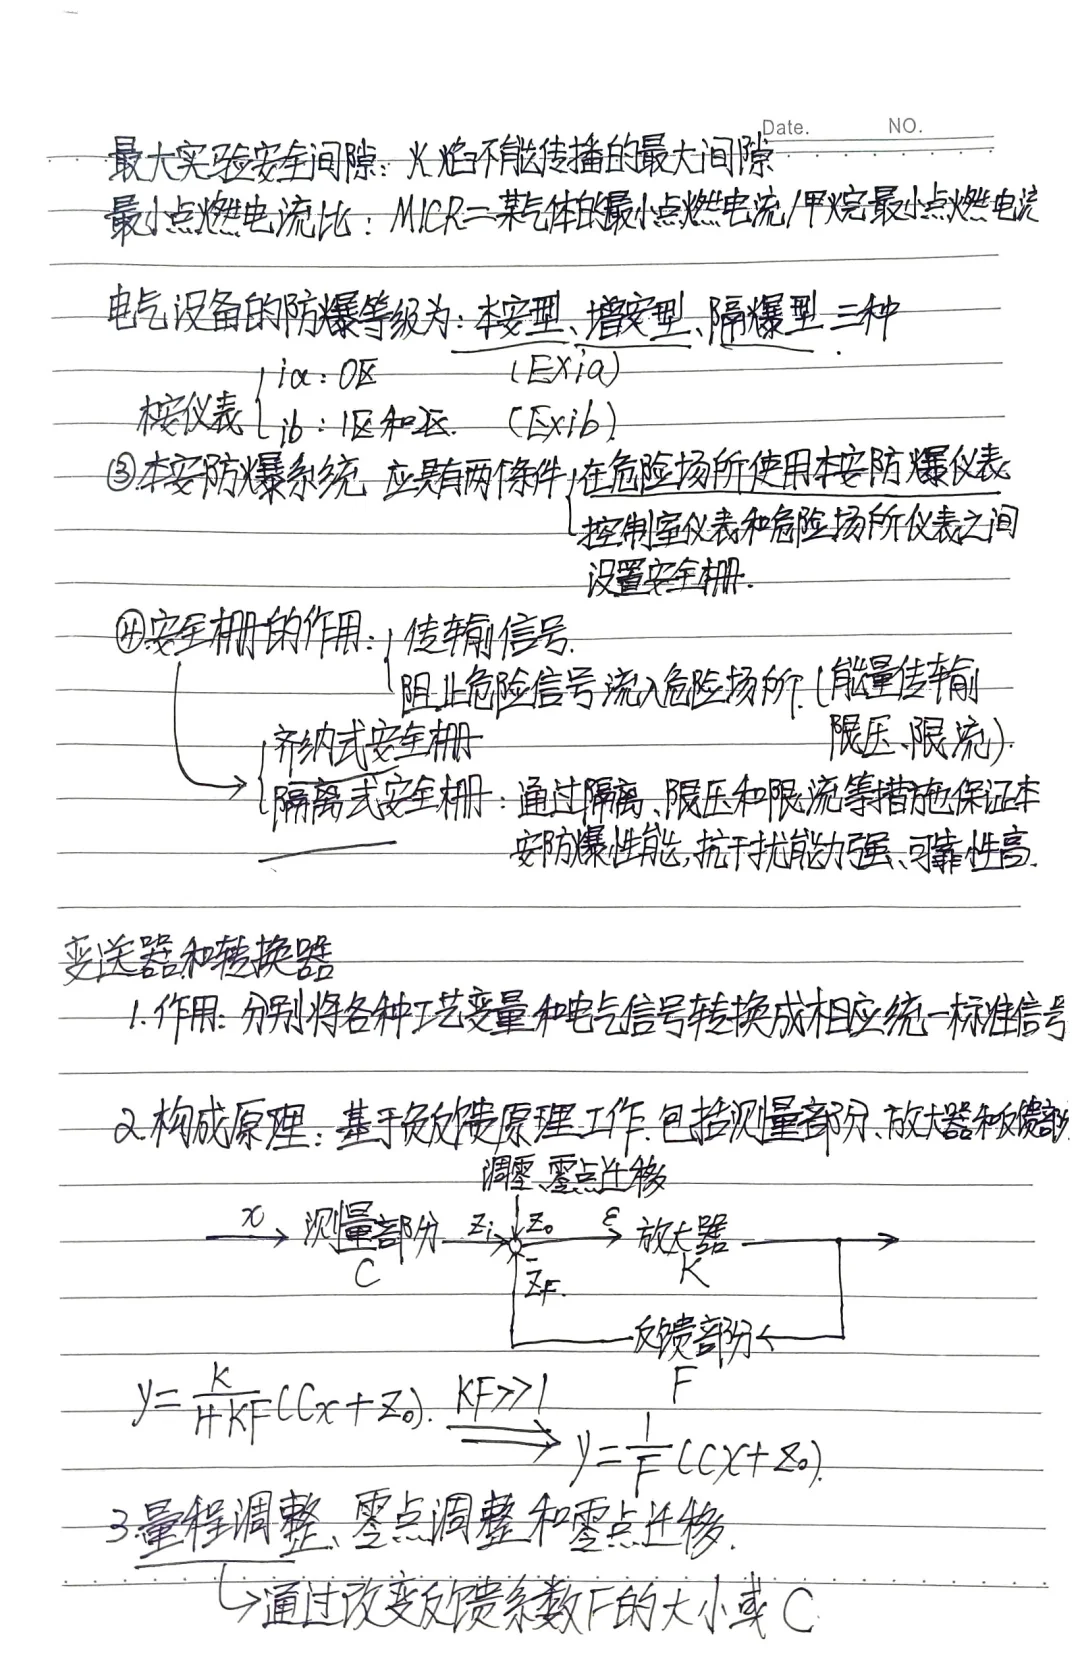 Date. NO.
最大实验安全间隙：火焰不能传播的最大间隙
最小点燃电流比：MICR=某气体的最小点燃电流/甲烷最小点燃电流
电气设备的防爆等级为：本安型、增安型、隔爆型三种.
本安仪表 ia：0区 (Exia)
ib：1区和2区. (Exib)
③本安防爆系统 应具有两个条件 在危险场所使用本安防爆仪表
控制室仪表和危险场所仪表之间
设置安全栅.
④安全栅的作用：传输信号.
阻止危险信号流入危险场所.(能量传输
限压、限流).
齐纳式安全栅
隔离式安全栅：通过隔离、限压和限流等措施保证本
安防爆性能,抗干扰能力强、可靠性高.
变送器和转换器
1.作用：分别将各种工艺变量和电气信号转换成相应统一标准信号
2.构成原理：基于负反馈原理工作.包括测量部分、放大器和反馈部
调零、零点迁移
x 测量部分 Zi Z₀ ε 放大器
C - ZF. K
反馈部分
F
y=K/(1+KF)(Cx+Z₀). KF>>1
y=1/F(Cx+Z₀).
3.量程调整、零点调整和零点迁移.
通过改变反馈系数F的大小或C